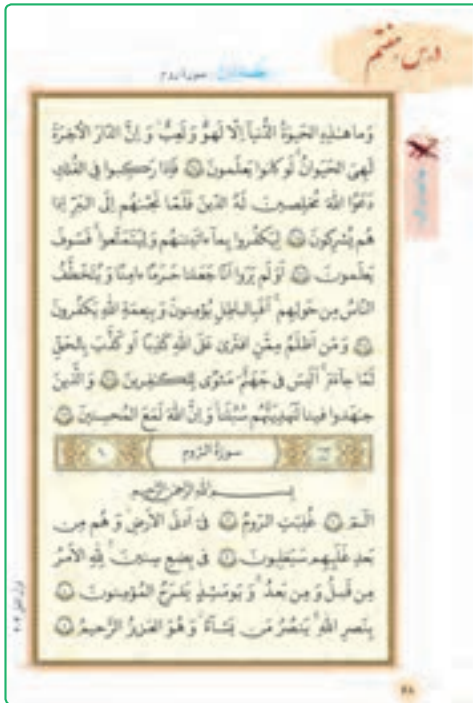 درس هفتم
سورۀ روم
وَما هٰذِهِ الحَیٰوةُ الدُّنیآ اِلّا لَهوٌ وَ لَعِبٌ وَ اِنَّ الدّارَ الآخِرَةَ
لَهِیَ الحَیَوانُ لَو کانوا یَعلَمونَ ﴿۶۴﴾ فَاِذا رَکِبوا فِی الفُلکِ
دَعَوُا اللهَ مُخلِصینَ لَهُ الدّینَ فَلَمّا نَجّٰىهُم اِلَی البَرِّ اِذا
هُم یُشرِکونَ ﴿۶۵﴾ لِیَکفُروا بِمآ ءاتَینٰهُم وَ لِیَتَمَتَّعوا فَسَوفَ
یَعلَمونَ ﴿۶۶﴾ اَوَلَم یَرَوا اَنّا جَعَلنا حَرَمًا ءامِنًا وَ یُتَخَطَّفُ
النّاسُ مِن حَولِهِم اَفَبِالباطِلِ یُؤمِنونَ وَ بِنِعمَةِ اللهِ یَکفُرونَ
﴿۶۷﴾ وَ مَن اَظلَمُ مِمَّنِ افتَرٰی عَلَی اللهِ کَذِبًا اَو کَذَّبَ بِالحَقِّ
لَمّا جآءَهُ اَلَیسَ فی جَهَنَّمَ مَثوًی لِلکٰفِرینَ ﴿۶۸﴾ وَ الَّذینَ
جٰهَدوا فینا لَنَهدِیَنَّهُم سُبُلَنا وَ اِنَّ اللهَ لَمَعَ المُحسِنینَ ﴿۶۹﴾
سورةُ الرّوم
بِسمِ اللهِ الرَّحمٰنِ الرَّحیمِ
الٓمٓ ﴿۱﴾ غُلِبَتِ الرّومُ ﴿۲﴾ فی اَدنَی الاَرضِ وَ هُم مِن
بَعدِ غَلَبِهِم سَیَغلِبونَ ﴿۳﴾ فی بِضعِ سِنینَ لِلّٰهِ الاَمرُ
مِن قَبلُ وَ مِن بَعدُ وَ یَومَئِذٍ یَفرَحُ المُؤمِنونَ ﴿۴﴾
بِنَصرِ اللهِ یَنصُرُ مَن یَشآءُ وَ هُوَ العَزیزُ الرَّحیمُ ﴿۵﴾